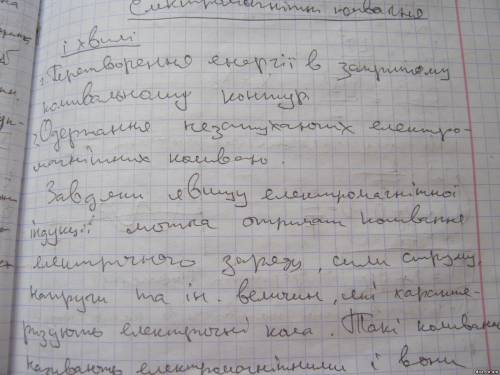 Електромагнітні коливання
і хвилі
1. Перетворення енергії в закритому
коливальному контурі
2. Одержання незатухаючих електро-
магнітних коливань.
Завдяки явищу електромагнітної
індукції можна отримати коливання
електричного заряду, сили струму,
напруги та ін. величин, які характе-
ризують електричні кола. Такі коливання
називають електромагнітними і вони